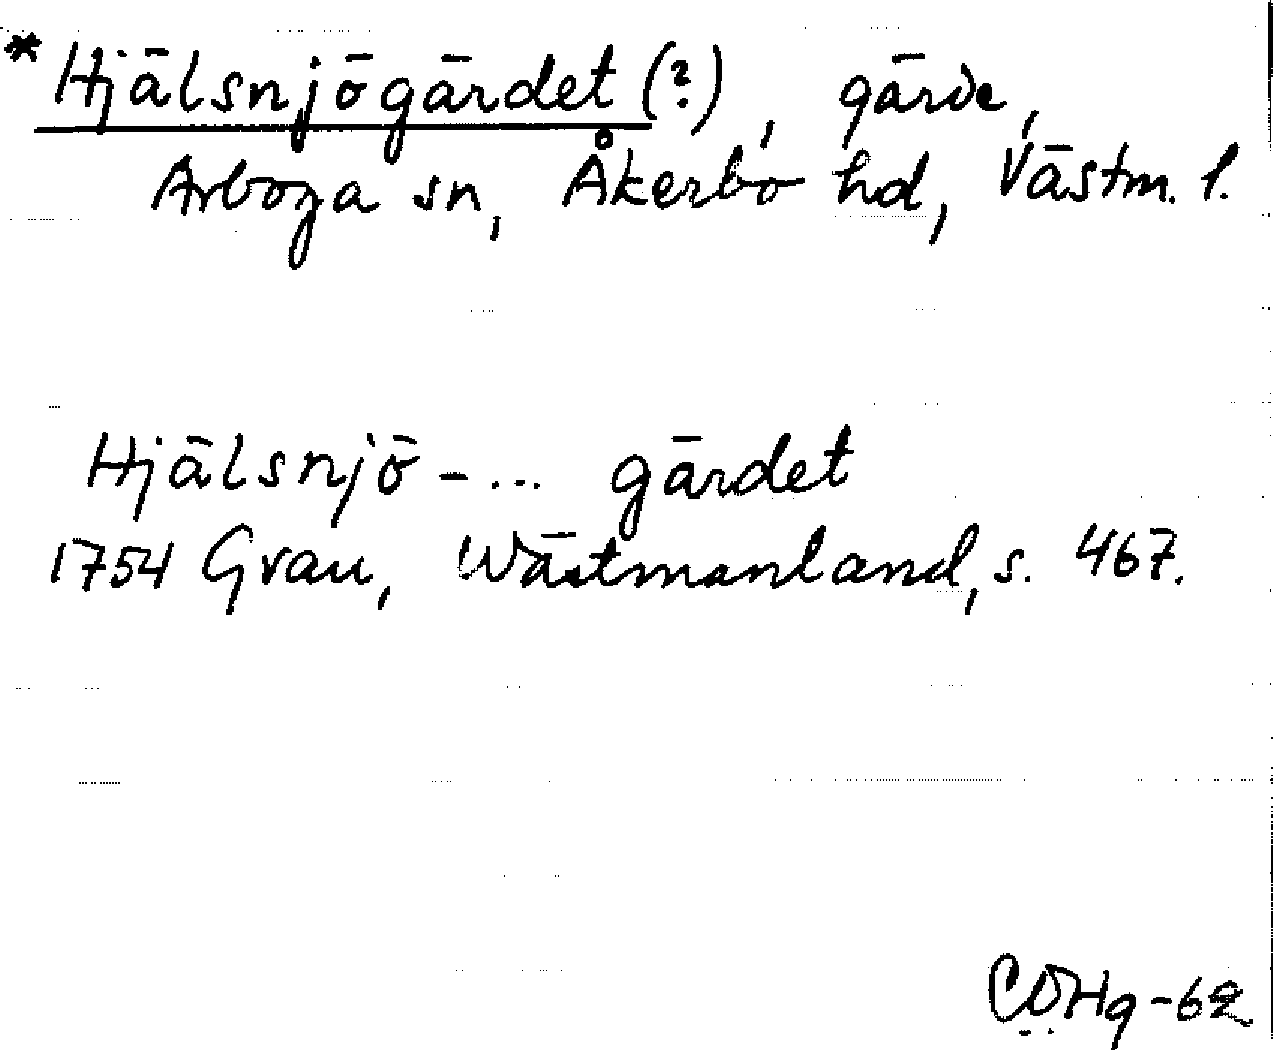 * Hjälsnjögärdet (?), gärde,
Arboga sn, Åkerbo hd, Västm. l.
Hjälsnjö - ... gärdet
1754 Grau, Wästmanland, s. 467.